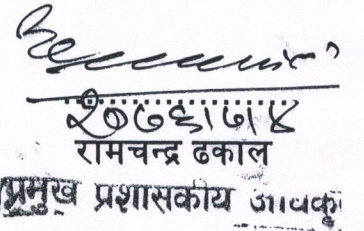 २०७६।७।४
रामचन्द्र ढकाल
प्रमुख प्रशासकीय